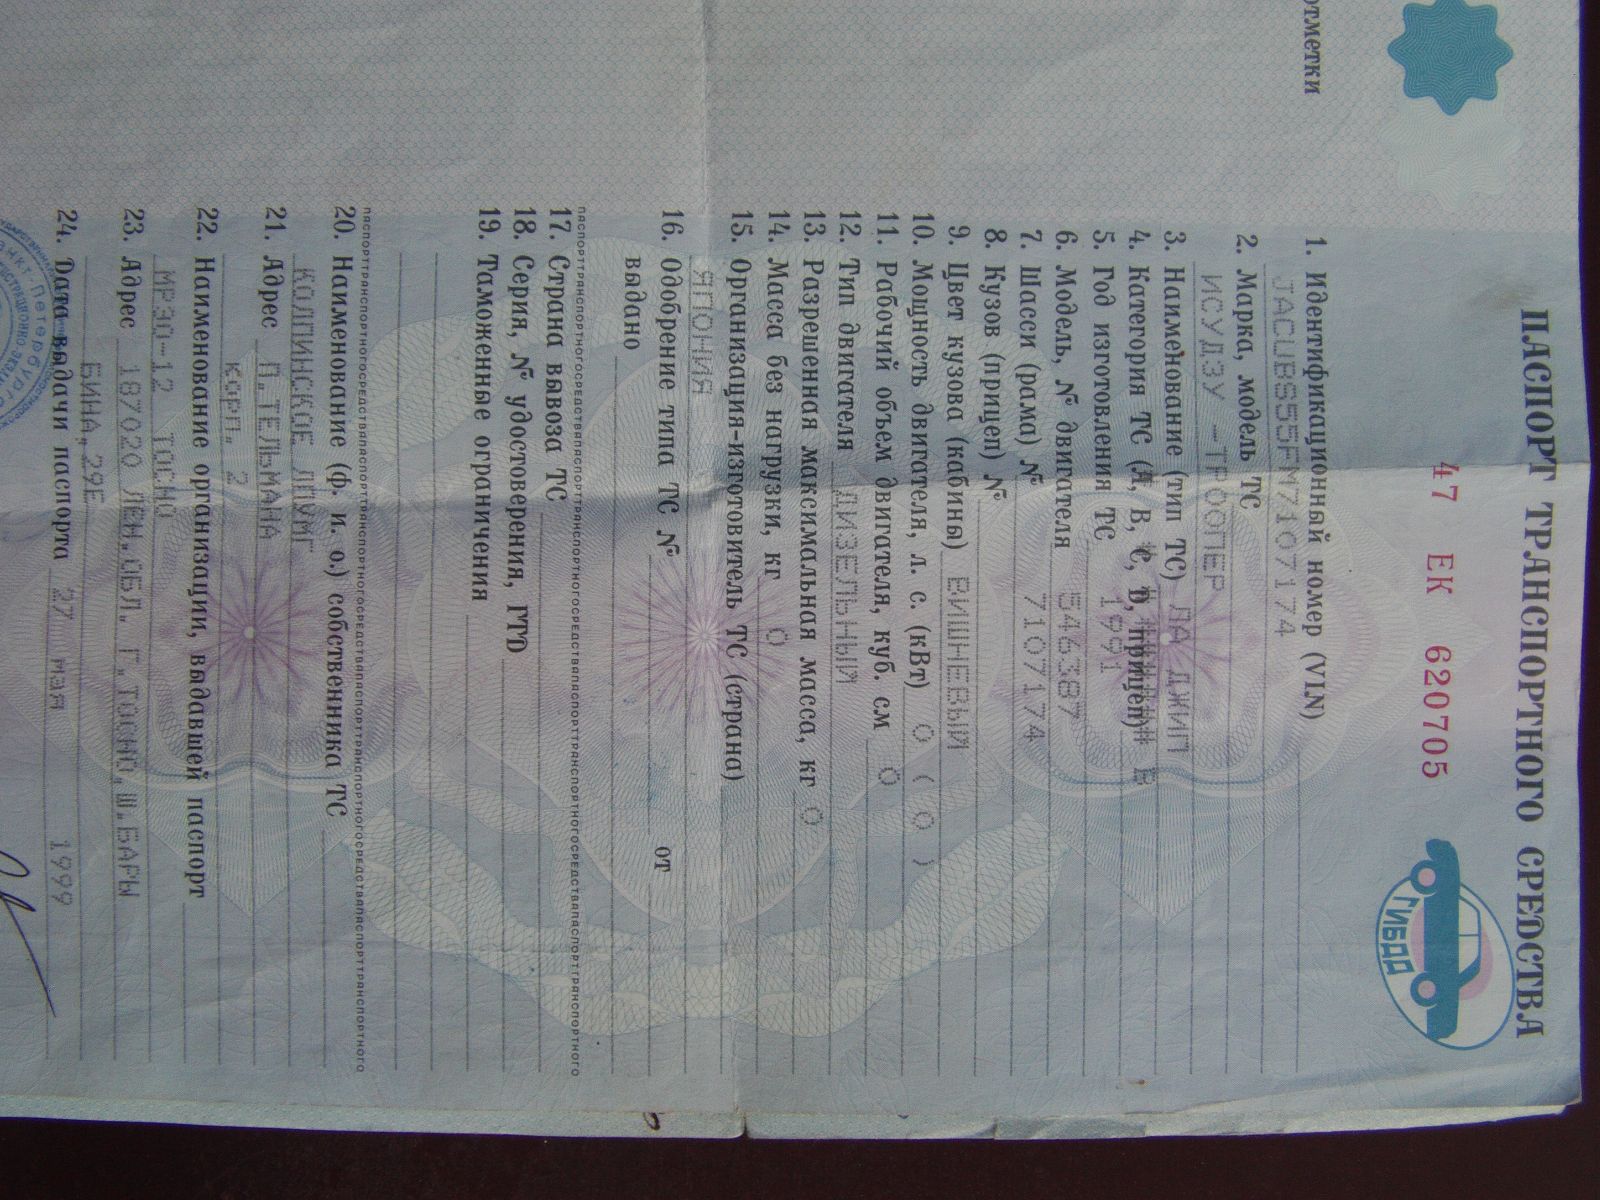 отметки
ПАСПОРТ ТРАНСПОРТНОГО СРЕДСТВА
47 ЕК 620705
ГИБДД
1. Идентификационный номер (VIN)
JACUBS55FM7107174
2. Марка, модель ТС
ИСУДЗУ -ТРООПЕР
3. Наименование (тип ТС) ЛА ДЖИП
4. Категория ТС (А, В, С, D, прицеп) В
5. Год изготовления ТС 1991
6. Модель, № двигателя 546387
7. Шасси (рама) № 7107174
8. Кузов (прицеп) №
9. Цвет кузова (кабины) ВИШНЕВЫЙ
10. Мощность двигателя, л. с. (кВт) 0 ( 0 )
11. Рабочий объем двигателя, куб. см 0
12. Тип двигателя ДИЗЕЛЬНЫЙ
13. Разрешенная максимальная масса, кг 0
14. Масса без нагрузки, кг 0
15. Организация-изготовитель ТС (страна)
ЯПОНИЯ
16. Одобрение типа ТС № от
выдано
17. Страна вывоза ТС
18. Серия, № удостоверения, ГТD
19. Таможенные ограничения
20. Наименование (ф. и. о.) собственника ТС
КОЛПИНСКОЕ ЛПУМГ
21. Адрес П.ТЕЛЬМАНА
корп. 2
22. Наименование организации, выдавшей паспорт
МРЭО-12 ТОСНО
23. Адрес 187020 ЛЕН.ОБЛ. Г.ТОСНО,Ш.БАРЫ
БИНА,29Е
24. Dата выдачи паспорта 27 мая 1999